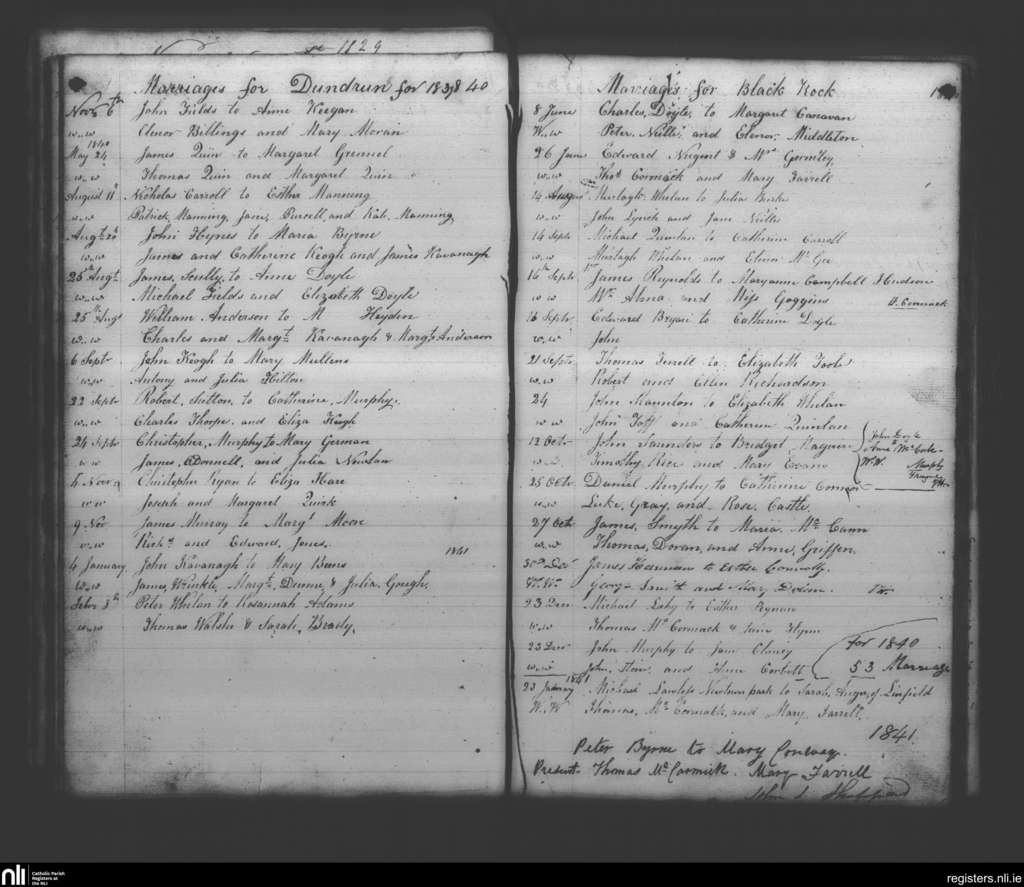 1829
Marriages for Dundrum for 1839 & 40
Novr 6th John Fields to Anne Keegan
w..w Elenor Billings and Mary Moran
1840
May 24 James Quin to Margaret
w..w Thomas Quin and Margaret Quin
August 11th Nicholas Carroll to Esther Manning
w..w Patrick Manning, Jane, Purcell, and Kate, Manning
Augt 20 John Hynes to Maria Byrne
w..w James and Catherine Keogh and James Kavanagh
25th Augt James, Scully, to Anne Doyle
w..w Michael Fields and Elizabeth Doyle
25th Augt William Anderson to M Heyden
w..w Charles and Margt Kavanagh & Margt Anderson
6 Septr John Keogh to Mary Mullens
w..w Antony and Julia Hilton
22 Septr Robert, Sutton, to Catharine, Murphy.
w..w Charles Thorpe, and Eliza Keogh
24 Septr Christopher, Murphy to Mary German
w w James, O'Donnell, and Julia Nowlan
6 Novr Christopher Ryan to Eliza Hare
w w Joseph and Margaret Quirk
9 Nov James Murray to Margt Moore
w..w Richd and Edward, Jones,
1841
4 January John Kavanagh to Mary Burns
w..w James, Winkle, Margt Dunne, & Julia, Gough,
Febr 8th Peter Whelan to Rosannah Adams
w..w Thomas Walsh & Sarah, Brady,
Marriages for Black Rock
8 June Charles, Doyle, to Margaret Caravan
W..w Peter, and Elenor, Middleton
26 June Edward Nugent & Mrs Gormley
w..w Thos Cormack and Mary Farrell
14 August Whelan to Julia Burke
w..w John Lynch and Jane
14 Septr Michael Quinlan to Catherine Carroll
w..w Murtagh Whelan and Elinor McGee
16th Septr James Reynolds to Maryanne Campbell Hudson
w w Wm Alma and Miss Goggins O. Cormack
16 Septr Edward Bryan to Catherine Doyle
w..w John
21 Septr Thomas Tyrell to Elizabeth Toole
w..w Robert and Ellen Richardson
24 John Staunton to Elizabeth Whelan
w w John and Catherine Quinlan
12 Octr John Saunders to Bridget, Maguire John Doyle
w..w Timothy Rice and Mary Evans Anne McCabe
W.W. Murphy
25 Octr Daniel Murphy to Catherine Connor
w..w Luke, Gray, and Rose, Castle,
27 Octr James, Smyth to Maria McCann
w..w Thomas, Doran, and Anne, Griffen
James to Esther Connolly.
W. W. George and Mary Dolan.
23 Decr Michael Leahy to Esther
w..w Thomas McCormack & Flynn
23 Decr John Murphy to Jane Clancy For 1840
w..w John, and Anne Corbett 53 Marriage
1841
23 January Michael Lawless Newtown park to Sarah, of Linfield
W..W Thomas, McCormack, and Mary, Farrell.
1841
Peter Byrne to Mary Conway.
Present Thomas McCormick. Mary Farrell
John Sheppard
nli Catholic Parish Registers at the NLI
registers.nli.ie